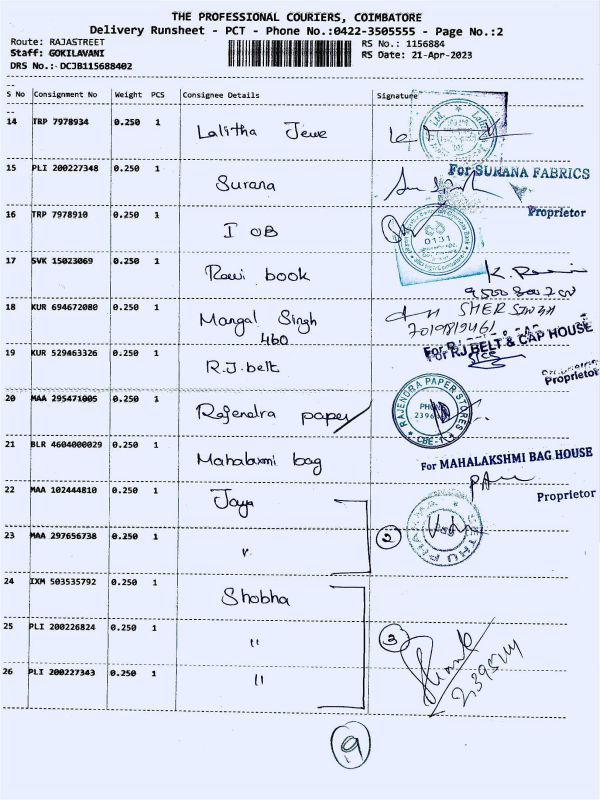 THE PROFESSIONAL COURIERS, COIMBATORE
Delivery Runsheet - PCT - Phone No.:0422-3505555 - Page No.:2
Route: RAJASTREET
RS No.: 1156884
Staff: GOKILAVANI
RS Date: 21-Apr-2023
DRS No.:- DCJB115688402
S No Consignment No Weight PCS Consignee Details Signature
14 TRP 7978934 0.250 1 Lalitha Jewe
15 PLI 200227348 0.250 1 Surana For SURANA FABRICS
Proprietor
16 TRP 7978910 0.250 1 I OB 0131
17 SVK 15023069 0.250 1 Ravi book
18 KUR 694672080 0.250 1 Mangal Singh SHER SINGH
460 7019819461
19 KUR 529463326 0.250 1 R.J. belt For RJ BELT & CAP HOUSE
Proprietor
20 MAA 295471005 0.250 1 Rajendra paper RAJENDRA PAPER STORES
21 BLR 4604000029 0.250 1 Mahalaxmi bag For MAHALAKSHMI BAG HOUSE
Proprietor
22 MAA 102444810 0.250 1 Jaya
23 MAA 297656738 0.250 1 " 2
24 IXM 503535792 0.250 1 Shobha
25 PLI 200226824 0.250 1 " 3
26 PLI 200227343 0.250 1 "
9